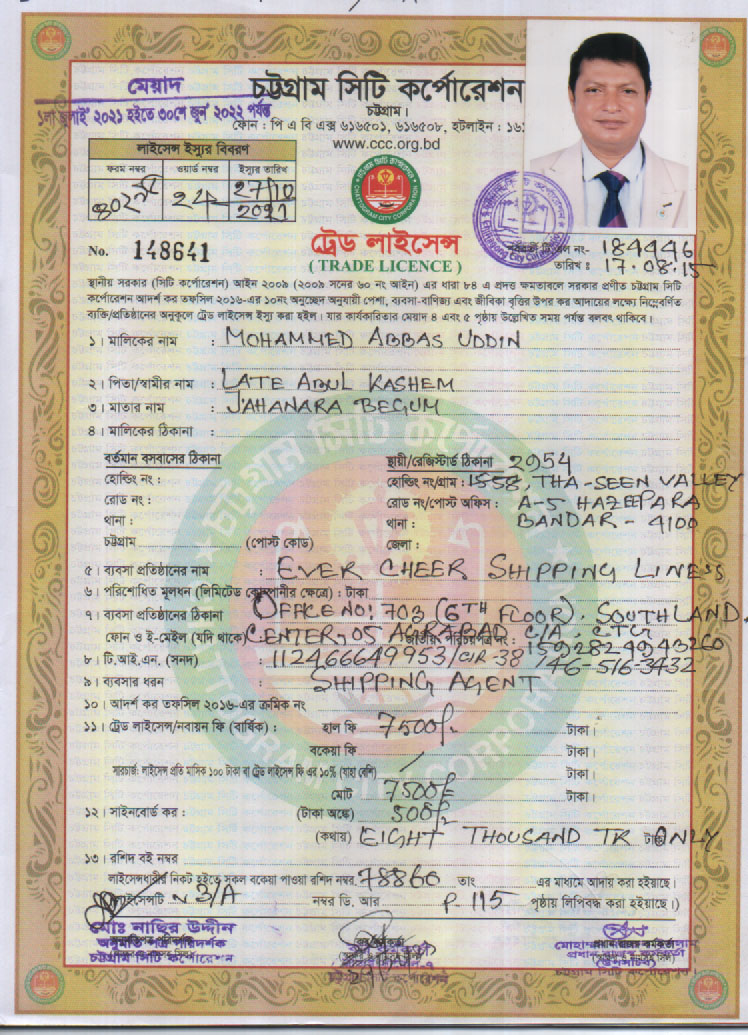 মেয়াদ
১লা জুলাই' ২০২১ হইতে ৩০শে জুন' ২০২২ পর্যন্ত
চট্টগ্রাম সিটি কর্পোরেশন
চট্টগ্রাম।
ফোন : পি এ বি এক্স ৬১৬৫০১, ৬১৬৫০৮, হটলাইন : ১৬১
www.ccc.org.bd
লাইসেন্স ইস্যুর বিবরণ
ফরম নম্বর ওয়ার্ড নম্বর ইস্যুর তারিখ
27/10
2021
No. 148641
ট্রেড লাইসেন্স
( TRADE LICENCE )
নং- 184446
তারিখ : 17.08.15
স্থানীয় সরকার (সিটি কর্পোরেশন) আইন ২০০৯ (২০০৯ সনের ৬০ নং আইন) এর ধারা ৮৪ এ প্রদত্ত ক্ষমতাবলে সরকার প্রণীত চট্টগ্রাম সিটি
কর্পোরেশন আদর্শ কর তফসিল ২০১৬-এর ১০নং অনুচ্ছেদ অনুযায়ী পেশা, ব্যবসা-বাণিজ্য এবং জীবিকা বৃত্তির উপর কর আদায়ের লক্ষ্যে নিম্নেবর্ণিত
ব্যক্তি/প্রতিষ্ঠানের অনুকূলে ট্রেড লাইসেন্স ইস্যু করা হইল। যার কার্যকারিতার মেয়াদ ৪ এবং ৫ পৃষ্ঠায় উল্লেখিত সময় পর্যন্ত বলবৎ থাকিবে।
১। মালিকের নাম : MOHAMMED ABBAS UDDIN
২। পিতা/স্বামীর নাম : LATE ABUL KASHEM
৩। মাতার নাম : JAHANARA BEGUM
৪। মালিকের ঠিকানা :
বর্তমান বসবাসের ঠিকানা
হোল্ডিং নং :
রোড নং :
থানা :
চট্টগ্রাম (পোস্ট কোড)
স্থায়ী/রেজিস্টার্ড ঠিকানা 2954
হোল্ডিং নং/গ্রাম : 1858, THA-SEEN VALLEY
রোড নং/পোস্ট অফিস : A-5 HAZEEPARA
থানা : BANDAR - 4100
জেলা :
৫। ব্যবসা প্রতিষ্ঠানের নাম : EVER CHEER SHIPPING LINE'S
৬। পরিশোধিত মূলধন (লিমিটেড কোম্পানীর ক্ষেত্রে) : টাকা
৭। ব্যবসা প্রতিষ্ঠানের ঠিকানা OFFICE NO: 703 (6TH FLOOR), SOUTHLAND
ফোন ও ই-মেইল (যদি থাকে) CENTER, 05 AGRABAD C/A, CTG
জাতীয় পরিচয়পত্র নং : 1592824943260
৮। টি.আই.এন. (সনদ) : 112466649953/CIR-38 /46-516-3432
৯। ব্যবসার ধরন : SHIPPING AGENT
১০। আদর্শ কর তফসিল ২০১৬-এর ক্রমিক নং
১১। ট্রেড লাইসেন্স/নবায়ন ফি (বার্ষিক) : হাল ফি 7500/- টাকা।
বকেয়া ফি / টাকা।
সারচার্জ: লাইসেন্স প্রতি মাসিক ১০০ টাকা বা ট্রেড লাইসেন্স ফি এর ১০% (যাহা বেশি) টাকা।
মোট 7500/= টাকা।
১২। সাইনবোর্ড কর : (টাকা অঙ্কে) 500/=
(কথায়) EIGHT THOUSAND TK ONLY
১৩। রশিদ বই নম্বর
লাইসেন্সধারীর নিকট হইতে সকল বকেয়া পাওয়া রশিদ নম্বর 78860 তাং এর মাধ্যমে আদায় করা হইয়াছে।
লাইসেন্সটি N 3/A নম্বর ডি. আর P. 115 পৃষ্ঠায় লিপিবদ্ধ করা হইয়াছে।)
মোঃ নাছির উদ্দীন
অনুমতি পত্র পরিদর্শক
চট্টগ্রাম সিটি কর্পোরেশন